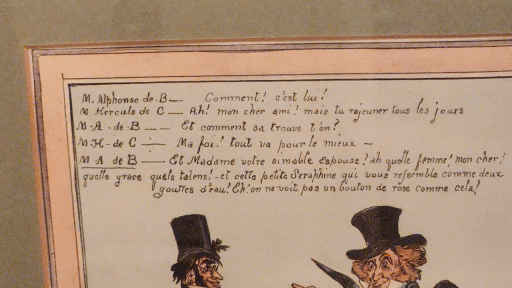 M. Alphonse de B— Comment! c'est lui!
M Hercule de C— Ah! mon cher ami! mais tu rajeunes tous les jours
M-A-de B—— Et comment sa trouve t'on?
M-H-de C— Ma foi! tout va pour le mieux—
M A de B— Et Madame votre aimable Espouse! ah quelle femme! mon cher!
quelle grace quels talens!-et cette petite Seraphine qui vous resemble comme deux
gouttes d'eau! Eh! on ne voit pas un bouton de rose comme cela!